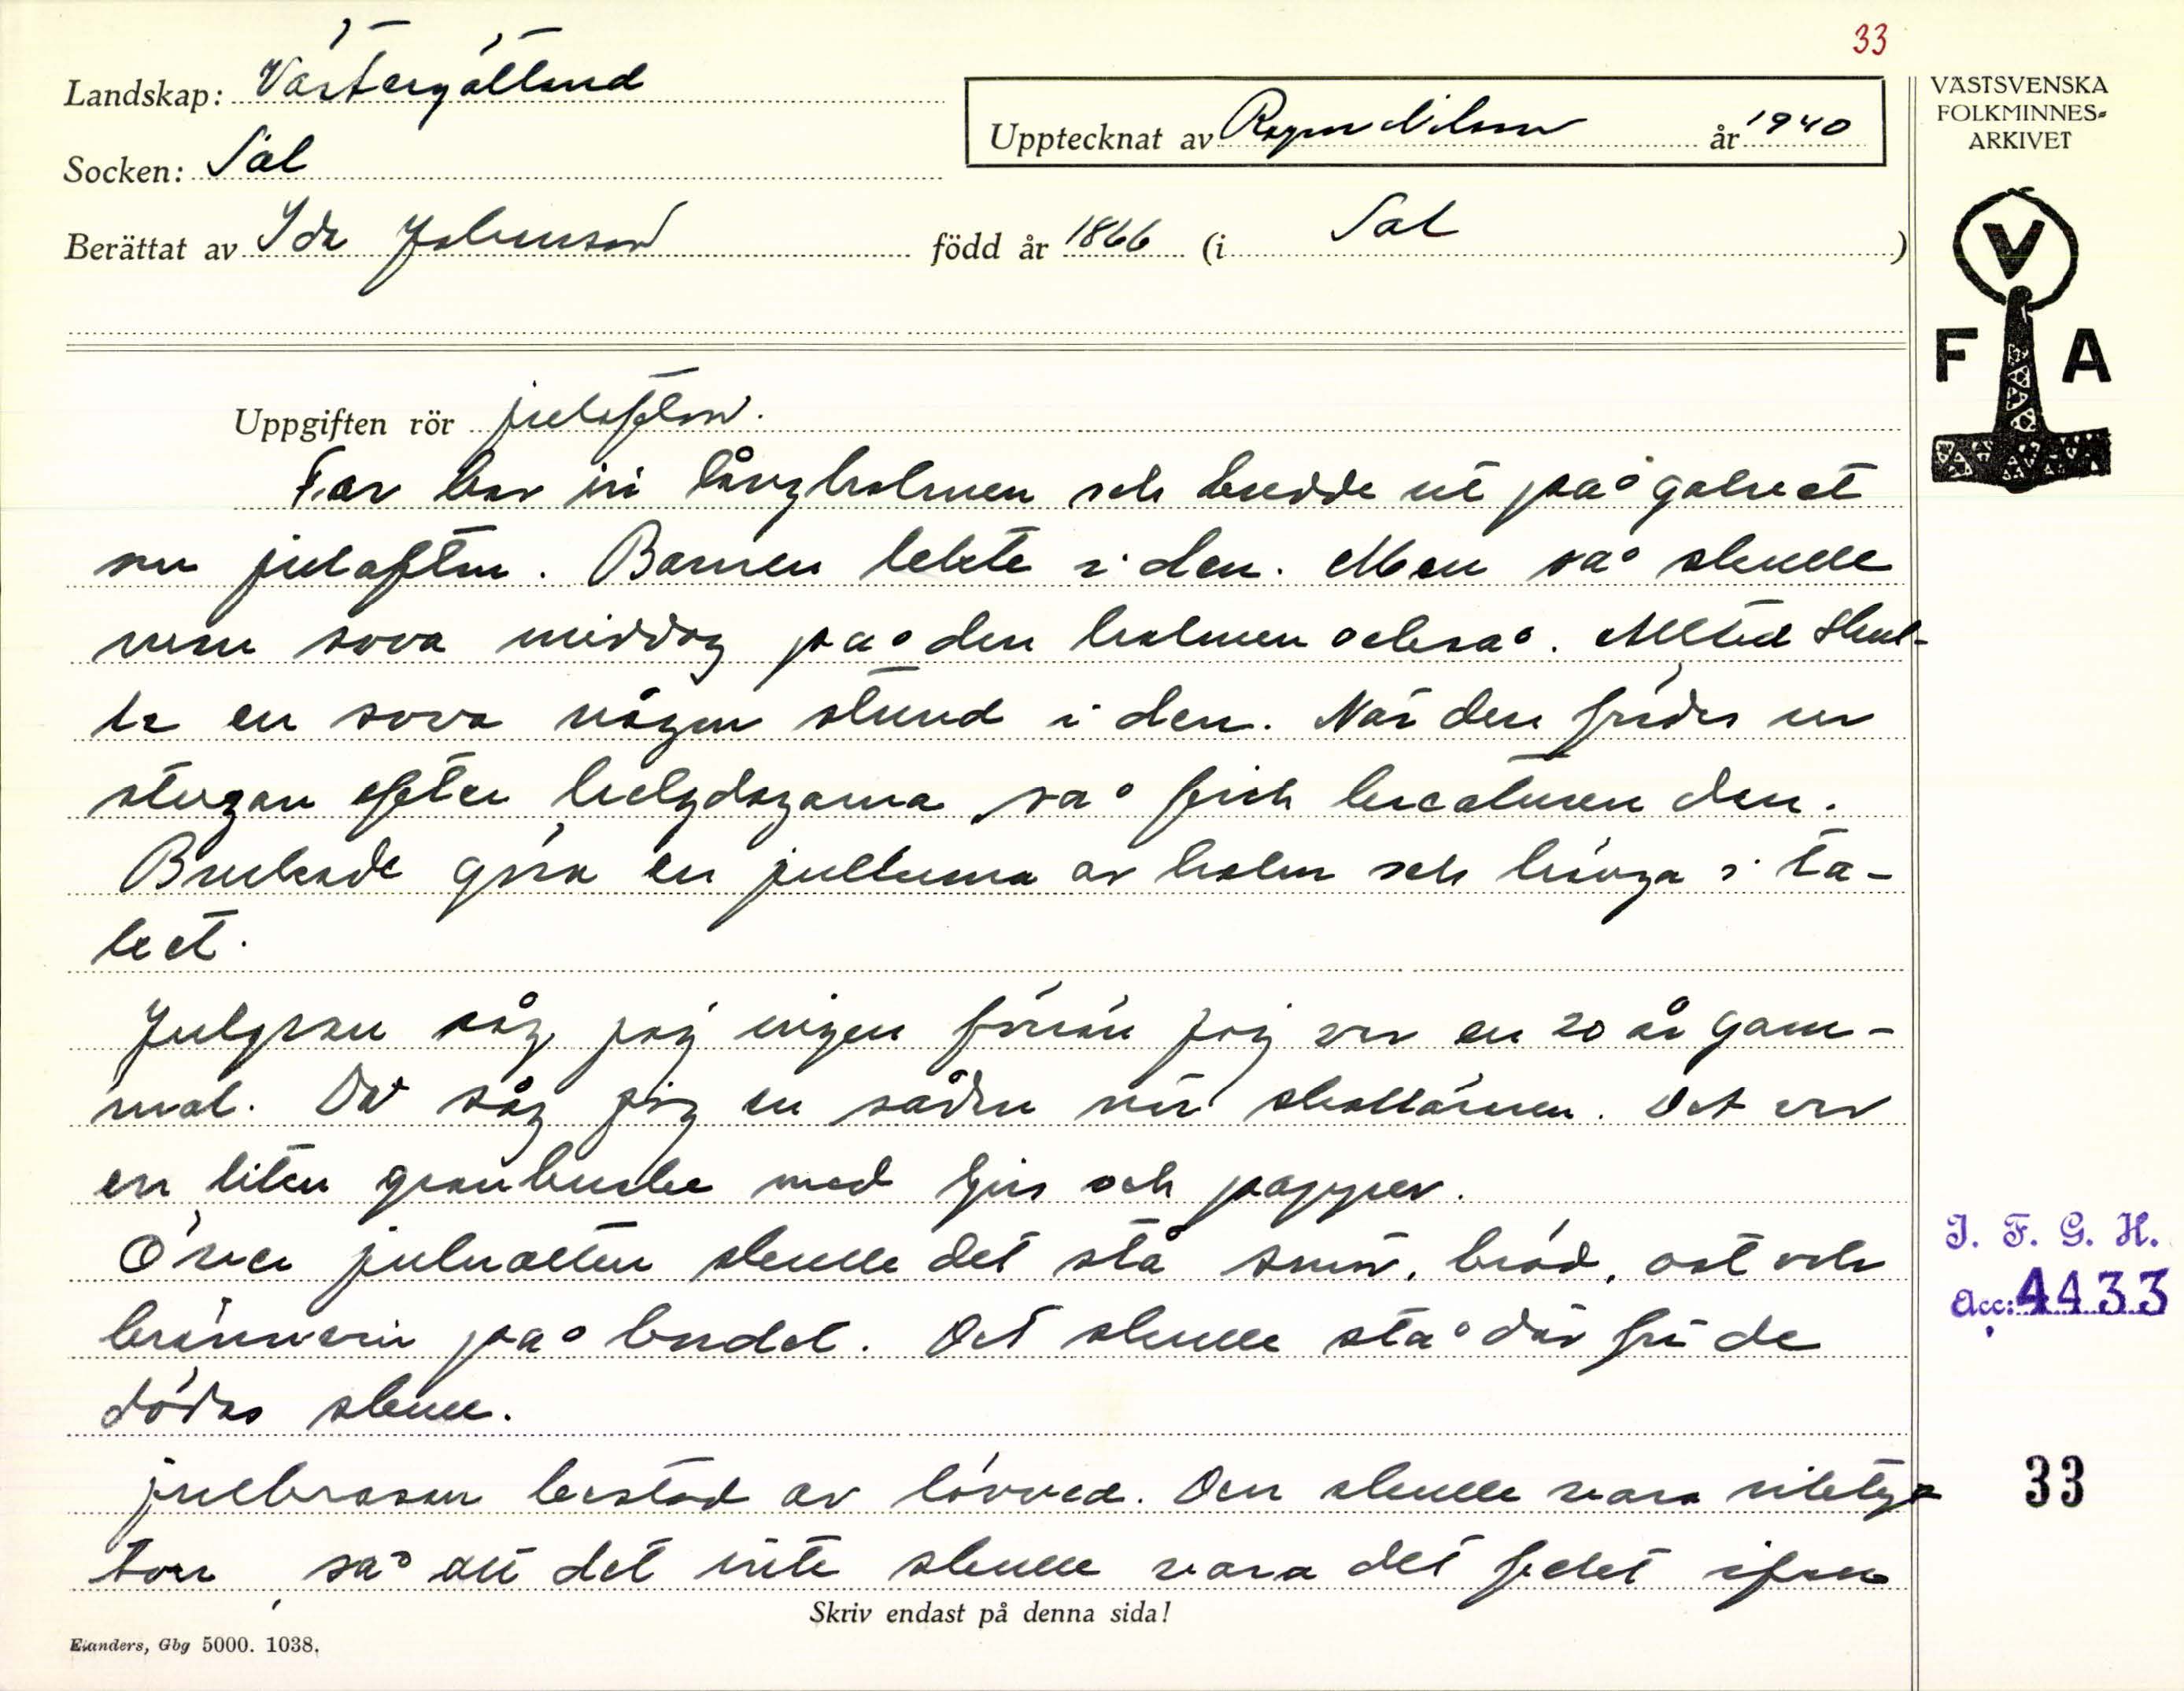 33
Landskap: Västergötland
Upptecknat av Ragnar Nilsson år 1940
VÄSTSVENSKA
FOLKMINNES-
ARKIVET
Socken: Sal
Berättat av Ida Johansson född år 1866 (i Sal)
V
F A
Uppgiften rör julafton.
Far bar in långhalmen och bredde ut på golvet
om julafton. Barnen lekte i den. Men så skulle
man sova middag på den halmen också. Alltid skul-
le en sova någon stund i den. När den fördes ur
stugan efter helgdagarna så fick kreaturen den.
Brukade göra en julkrona av halm och hänga i ta-
ket.
Julgran såg jag ingen förrän jag var en 20 år gam-
mal. Då såg jag en sådan när skolläraren. Det var
en liten granbuske med ljus och papper.
Över julnatten skulle det stå smör, bröd, ost och
brännvin på bordet. Det skulle stå där för de
dödas skull.
Julbrasan bestod av lövved. Den skulle vara riktigt
torr, så att det inte skulle vara det felet ifrån
Skriv endast på denna sida!
Elanders, Gbg 5000. 1038.
I. F. G. H.
Acc: 4433
33